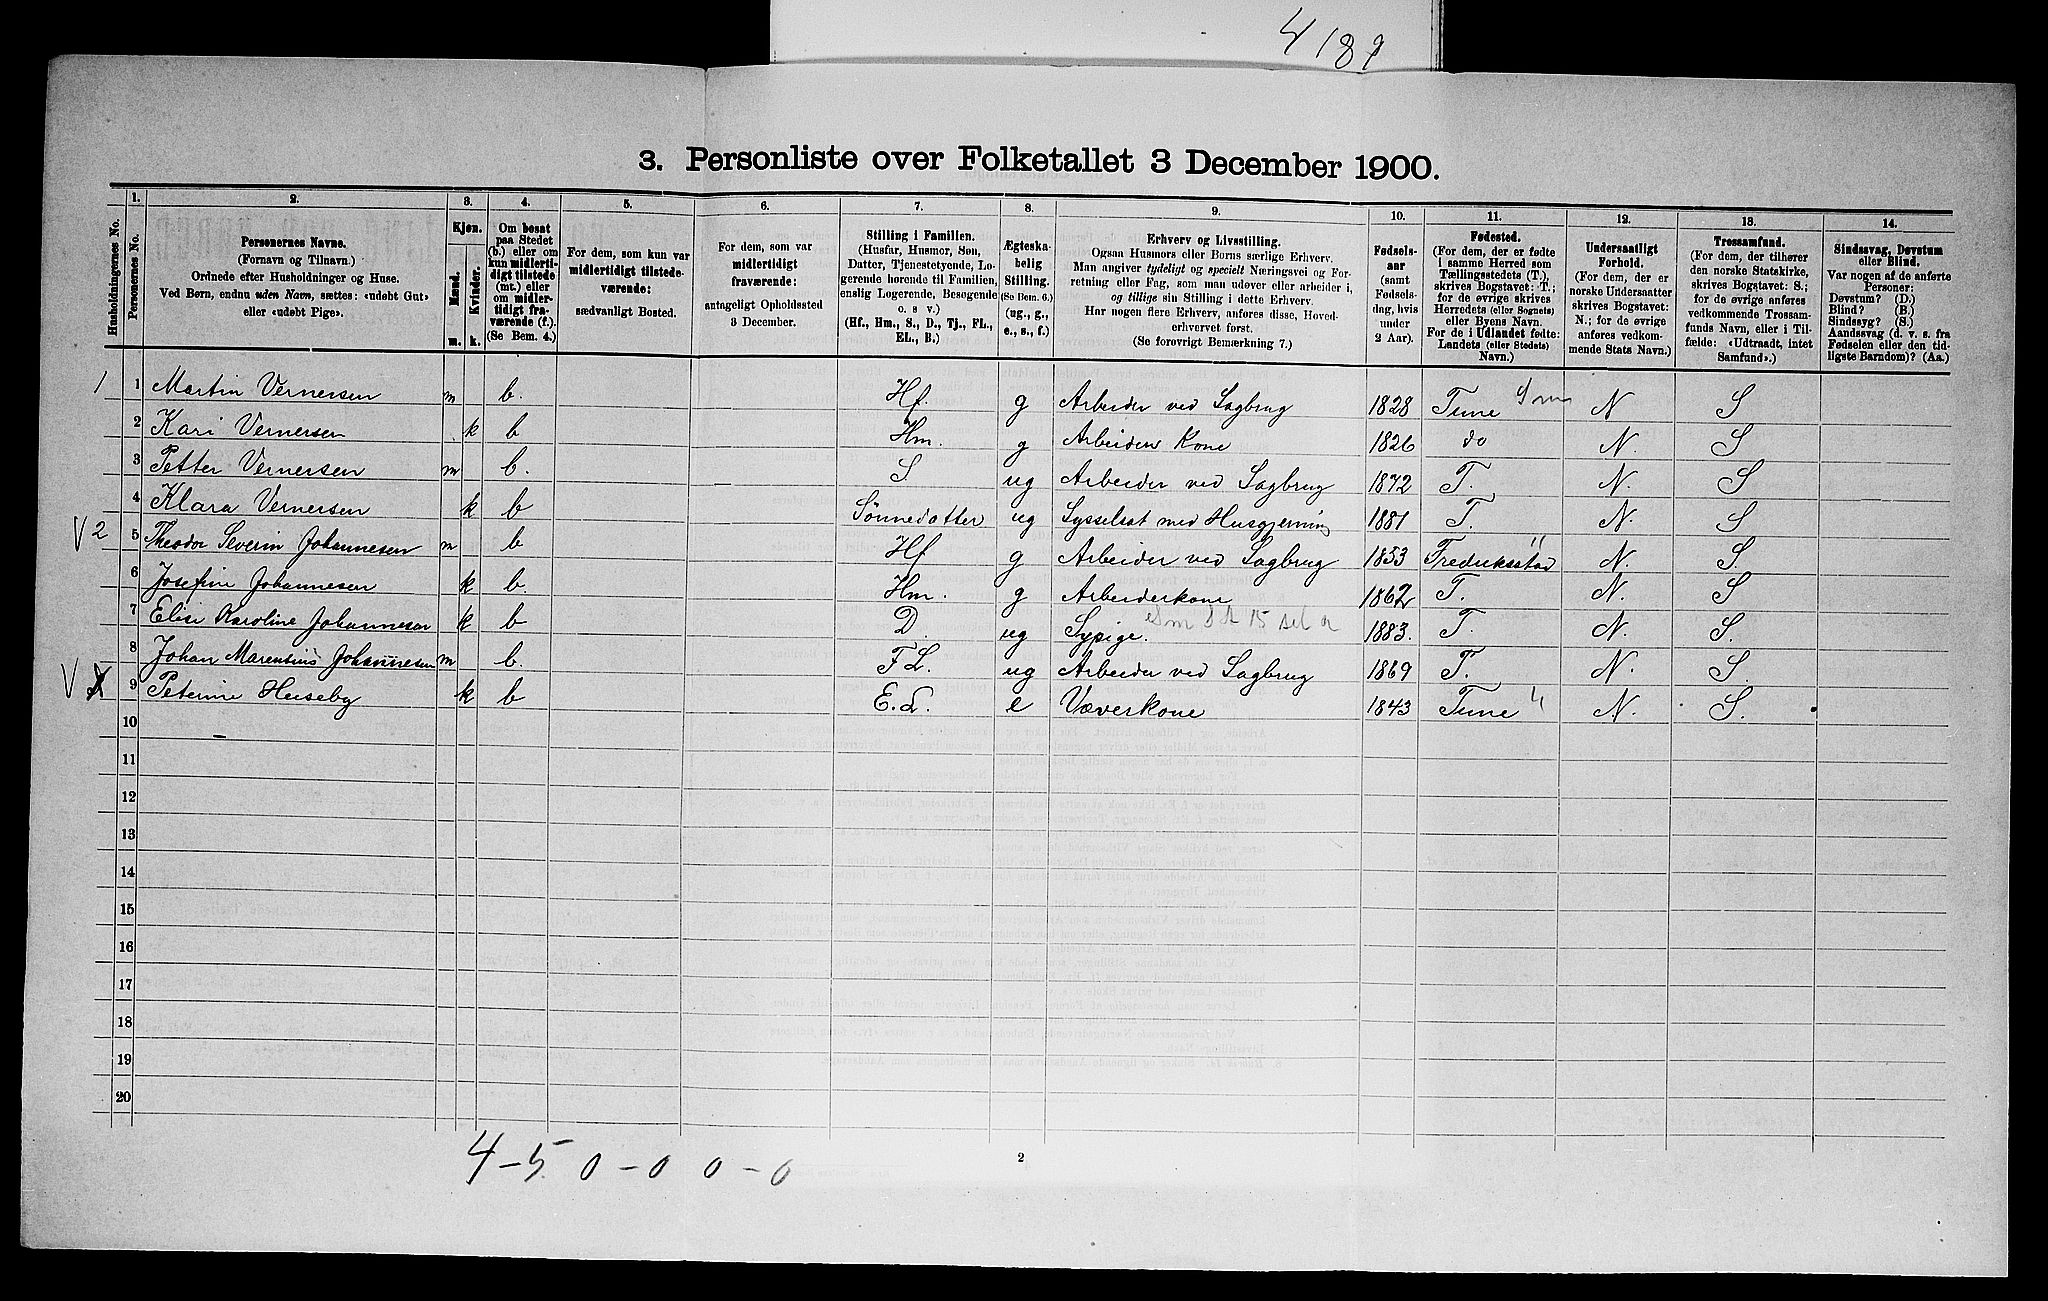 4 189
3. Personliste over Folketallet 3 December 1900.
Husholdningernes No.
1. Personernes No.
2. Personernes Navne. (Fornavn og Tilnavn.) Ordnede efter Husholdninger og Huse. Ved Børn, endnu uden Navn, sættes: «udøbt Gut» eller «udøbt Pige».
3. Kjøn. Mænd. m. Kvinder. k.
4. Om bosat paa Stedet (b.) eller om kun midlertidigt tilstede (mt.) eller om midlertidigt fraværende (f.). (Se Bem. 4.)
5. For dem, som kun var midlertidigt tilstedeværende: sædvanligt Bosted.
6. For dem, som var midlertidigt fraværende: antageligt Opholdssted 3 December.
7. Stilling i Familien. (Husfar, Husmor, Søn, Datter, Tjenestetyende, Logerende hørende til Familien, enslig Logerende, Besøgende o. s. v.) (Hf., Hm., S., D., Tj., FL., EL., B.)
8. Ægteskabelig Stilling. (Se Bem. 6.) (ug., g., e., s., f.)
9. Erhverv og Livsstilling. Ogsaa Husmors eller Børns særlige Erhverv. Man angiver tydeligt og specielt Næringsvei og Forretning eller Fag, som man udøver eller arbeider i, og tillige sin Stilling i dette Erhverv. Har nogen flere Erhverv, anføres disse, Hovederhvervet først. (Se forøvrigt Bemærkning 7.)
10. Fødselsaar (samt Fødselsdag, hvis under 2 Aar).
11. Fødested. (For dem, der er fødte i samme Herred som Tællingsstedets (T.), skrives Bogstavet: T.; for de øvrige skrives Herredets (eller Sognets) eller Byens Navn. For de i Udlandet fødte: Landets (eller Stedets) Navn.)
12. Undersaatligt Forhold. (For dem, der er norske Undersaatter skrives Bogstavet: N.; for de øvrige anføres vedkommende Stats Navn.)
13. Trossamfund. (For dem, der tilhører den norske Statskirke, skrives Bogstavet: S.; for de øvrige anføres vedkommende Trossamfunds Navn, eller i Tilfælde: «Udtraadt, intet Samfund».)
14. Sindssvag, Døvstum eller Blind. Var nogen af de anførte Personer: Døvstum? (D.) Blind? (B.) Sindssyg? (S.) Aandssvag (d. v. s. fra Fødselen eller den tidligste Barndom)? (Aa.)
1 1 Martin Vernersen m b. Hf. g Arbeider ved Sagbrug 1828 Tune N S
2 Kari Vernersen k b Hm. g Arbeiders Kone 1826 do N. S
3 Petter Vernersen m b. S ug Arbeider ved Sagbrug 1872 T. N. S
4 Klara Vernersen k b Sønnedatter ug Sysselsat med Husgjerning 1881 T. N. S
V 2 5 Theodor Severin Johannesen m b Hf g Arbeider ved Sagbrug 1853 Fredriksstad N. S.
6 Josefine Johannesen k b. Hm. g Arbeiderkone 1862 T. N. S
7 Elise Karoline Johannesen k b D. ug Sypige. 1883. T. N. S.
8 Johan Marensius Johannesen m b. FL. ug Arbeider ved Sagbrug 1869 T. N. S.
V 9 Peterine Huseby k b E.L. e Væverkone 1843 Tune N. S.
10
11
12
13
14
15
16
17
18
19
20
4-5 0-0 0-0
2